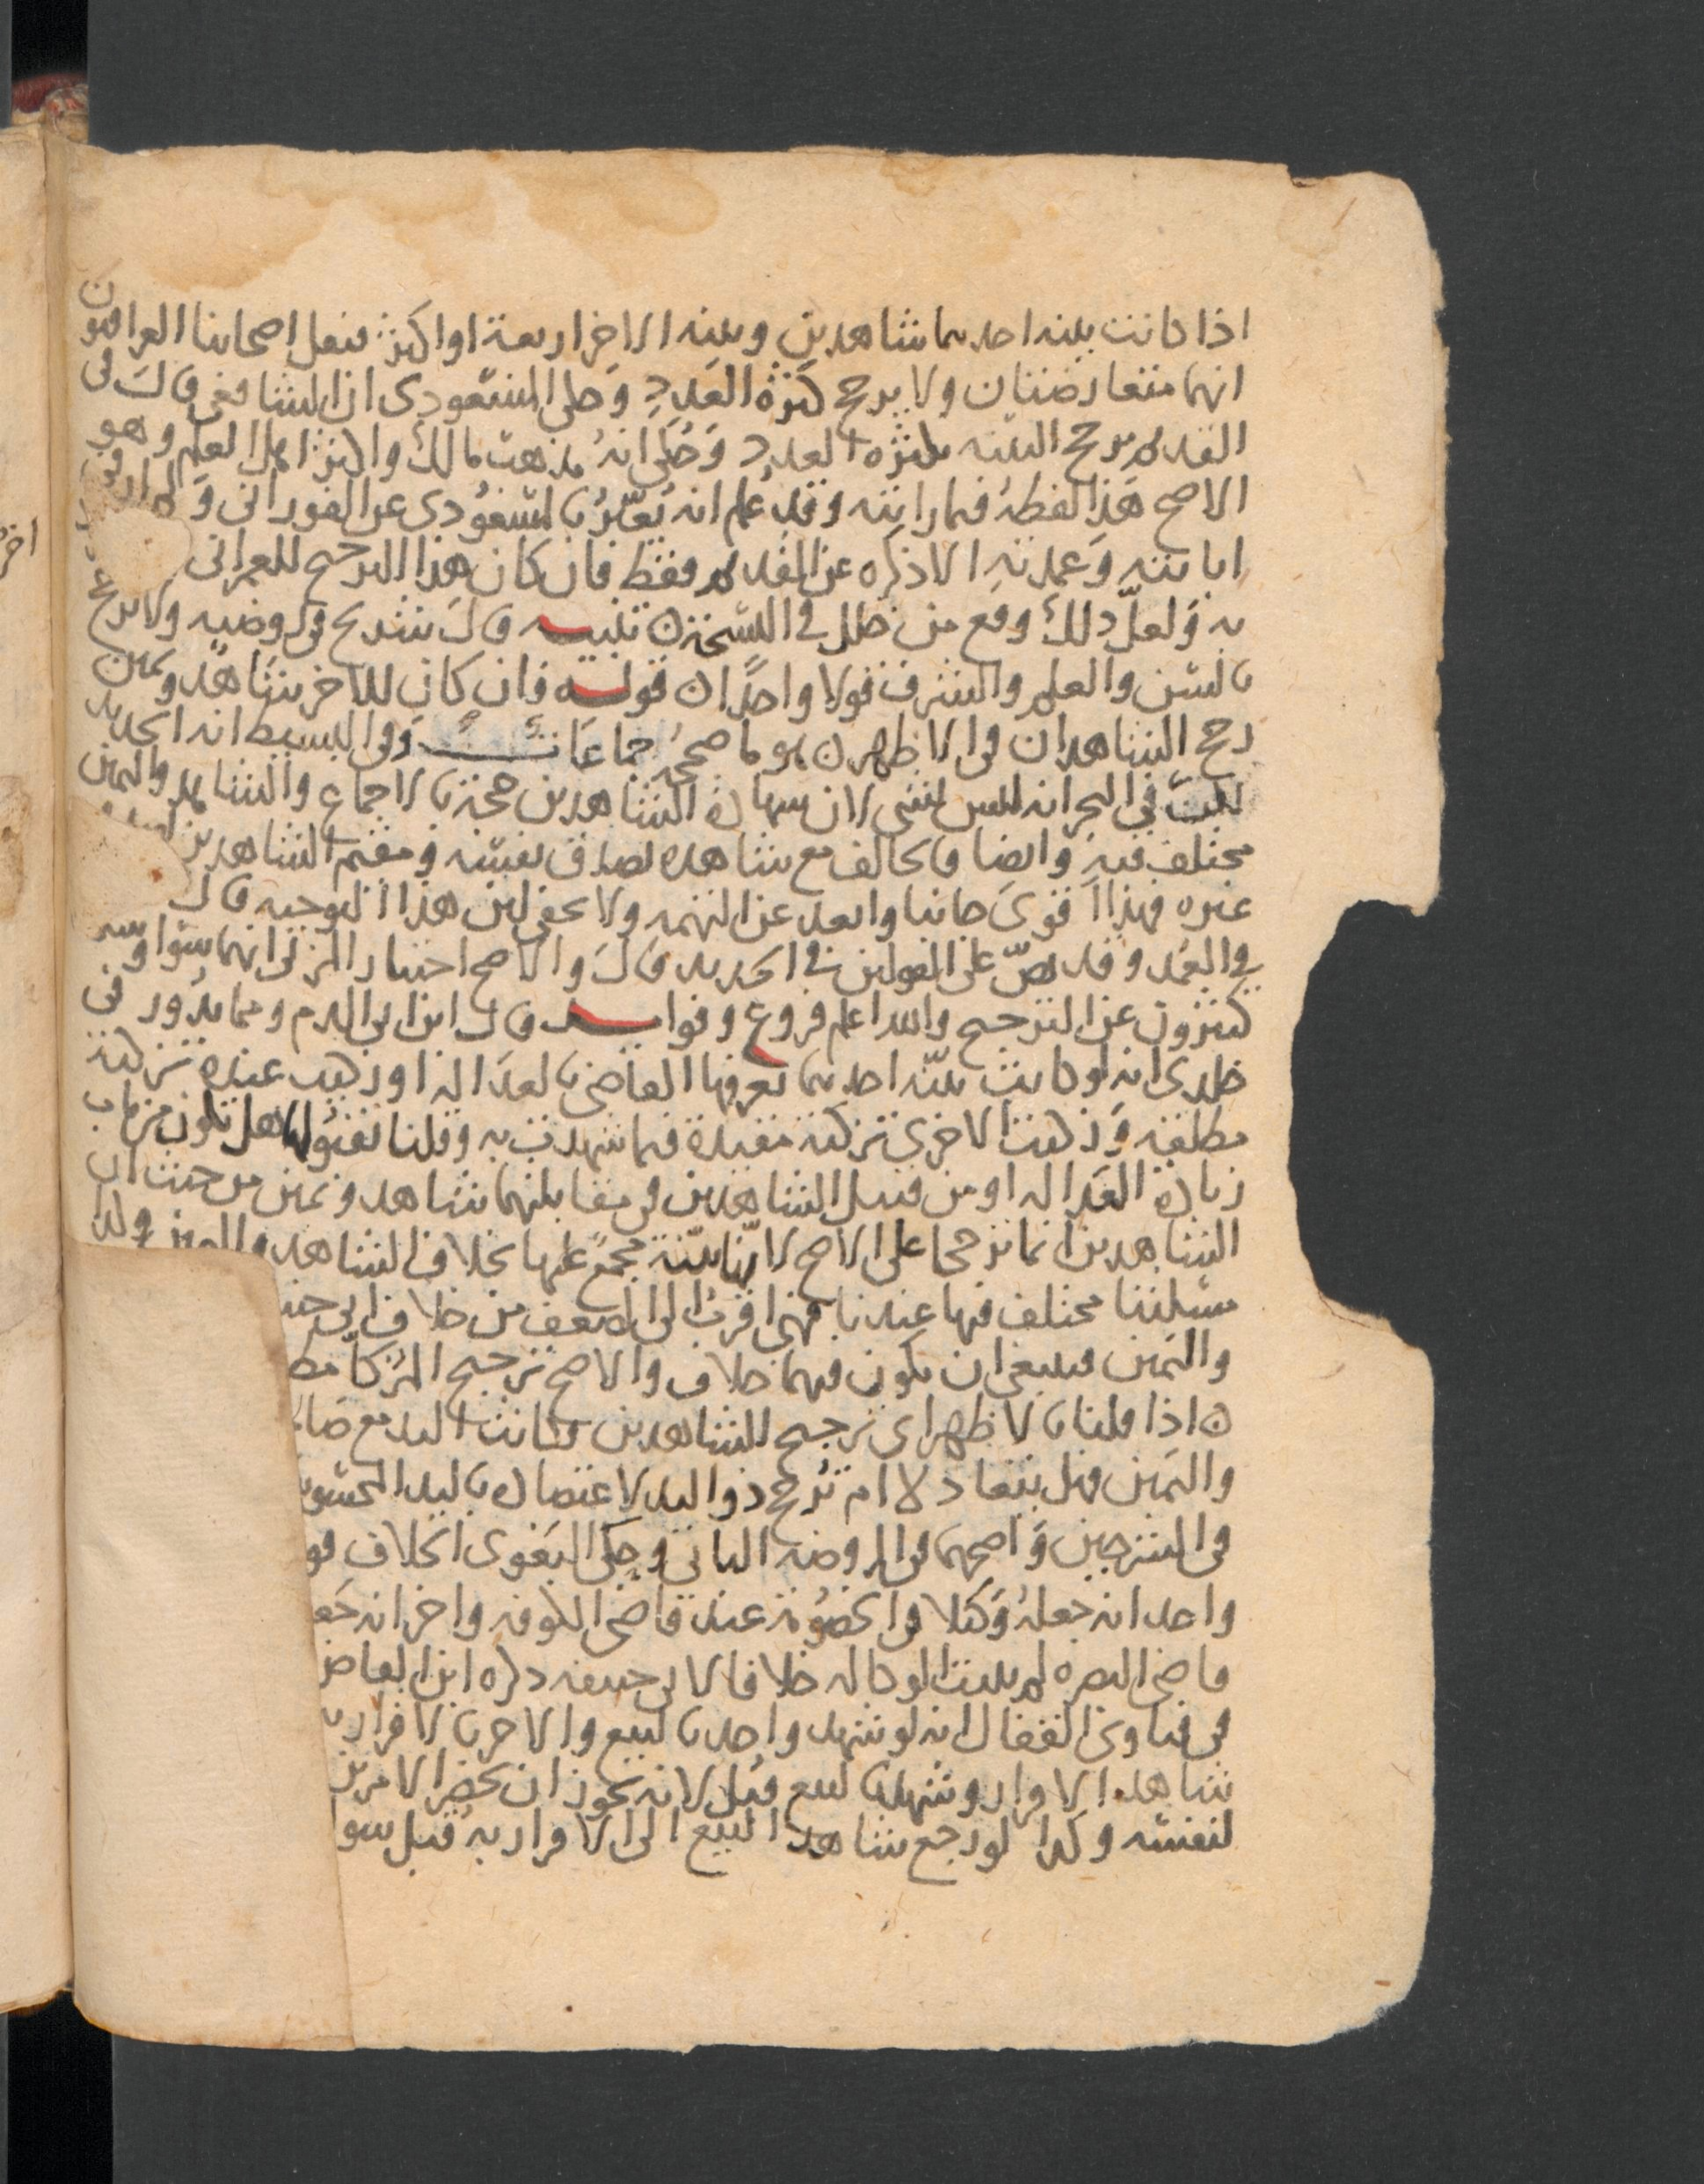 اذا كانت بينه احدهما شاهدين وبينه الاخر اربعة او اكثر فنقل اصحابنا العراقيون
انهما متعارضتان ولا يرجح كثرة العدد وحكى المسعودي ان الشافعي قال في
القديم يرجح البينه بكثره العدد وحكى انه مذهب مالك واكثر اهل العلم وهو
الاصح هذا لفظه فيما رايته وقد علم انه يعبر بالمسعودي عن الفوراني و في
ابانته وعمدته الا ذكره عن القديم فقط فان كان هذا الترجيح للعمراني
به ولعل ذلك وقع من خلل في النسخة ن تنبيه قال شريح في روضته ولا يرجح
بالسن والعلم والشرف قولا واحدا ن قوله فان كان للاخر شاهد ويمين
رجح الشاهدان في الاظهر ن هو ما صححه جماعات وفي البسيط انه الجديد
لكن في البحر انه ليس بشي لان شهادة الشاهدين حجة بالاجماع والشاهد واليمين
مختلف فيه وايضا فالحالف مع شاهده يصدق نفسه ومقيم الشاهدين
غيره فهذا اقوى جانبا وابعد عن التهمه ولا يخفى لين هذا التوجيه قال
في العمد وقد نص على القولين في الجديد قال والاصح اختيار المزني انهما سوا وسـ
كثيرون عن الترجيح والله اعلم فروع وفوايد قال ابن ابي الدم ومما يدور في
خلدي انه لو كانت بينة احدهما يعرفها القاضي بالعدالة او زكيت عنده تزكية
مطلقة وزكيت الاخرى تزكية مقيدة فيما شهدت به وقلنا بقبولها هل تكون من باب
زيادة العدالة او من قبيل الشاهدين في مقابلتهما شاهد ويمين من حيث ان
الشاهدين انما ترجحا على الاصح لانها بينة مجمع عليها بخلاف الشاهد واليمين وكذا
مسئلتنا مختلف فيها عندنا فهي اقرب الى الضعف من خلاف ابي حنيـ
واليمين فينبغي ان يكون فيهما خلاف والاصح ترجيح المزكاه مطـ
ن اذا قلنا بالاظهر اي ترجيح الشاهدين وكانت اليد مع صا
واليمين فهل يتعادلا ام ترجح ذو اليد لاعتضاده باليد المحسو
في الشرحين واصحهما في الروضه الثاني وحكى البغوي الخلاف قو
واحد انه جعله وكيلا في الخصومة عند قاضي الكوفه واخر انه جعـ
قاضي البصره لم يثبت الوكاله خلافا لابي حنيفه ذكره ابن القاص
في فتاوى القفال انه لو شهد واحد بالبيع والاخر بالاقرار بـ
شاهد الاقرار وشهد بالبيع قبل لانه يجوز ان يحضر الامرين
لنفسه وكذا لو رجع شاهد البيع الى الاقرار به قبل سوا